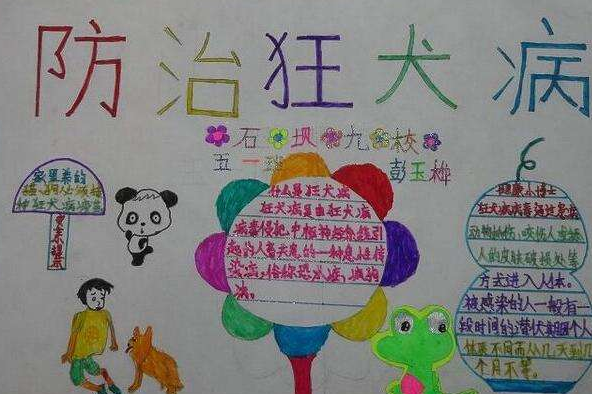 防治狂犬病
石坝九校
五一班 彭玉桦
家里养的
猫、狗人必须接
种狂犬病疫苗
更亲提示
什么是狂犬病
狂犬病是由狂犬病
病毒侵犯中枢神经系统引
起的人畜共患的一种急性传
染病，俗称恐水症、疯狗
病。
健康小博士
狂犬病病毒通过患病
动物抓伤、咬伤人或经
人的皮肤破损处等
方式进入人体。
被感染的人一般有一
段时间的潜伏期因个人
体质不同而从几天到几
个月不等。